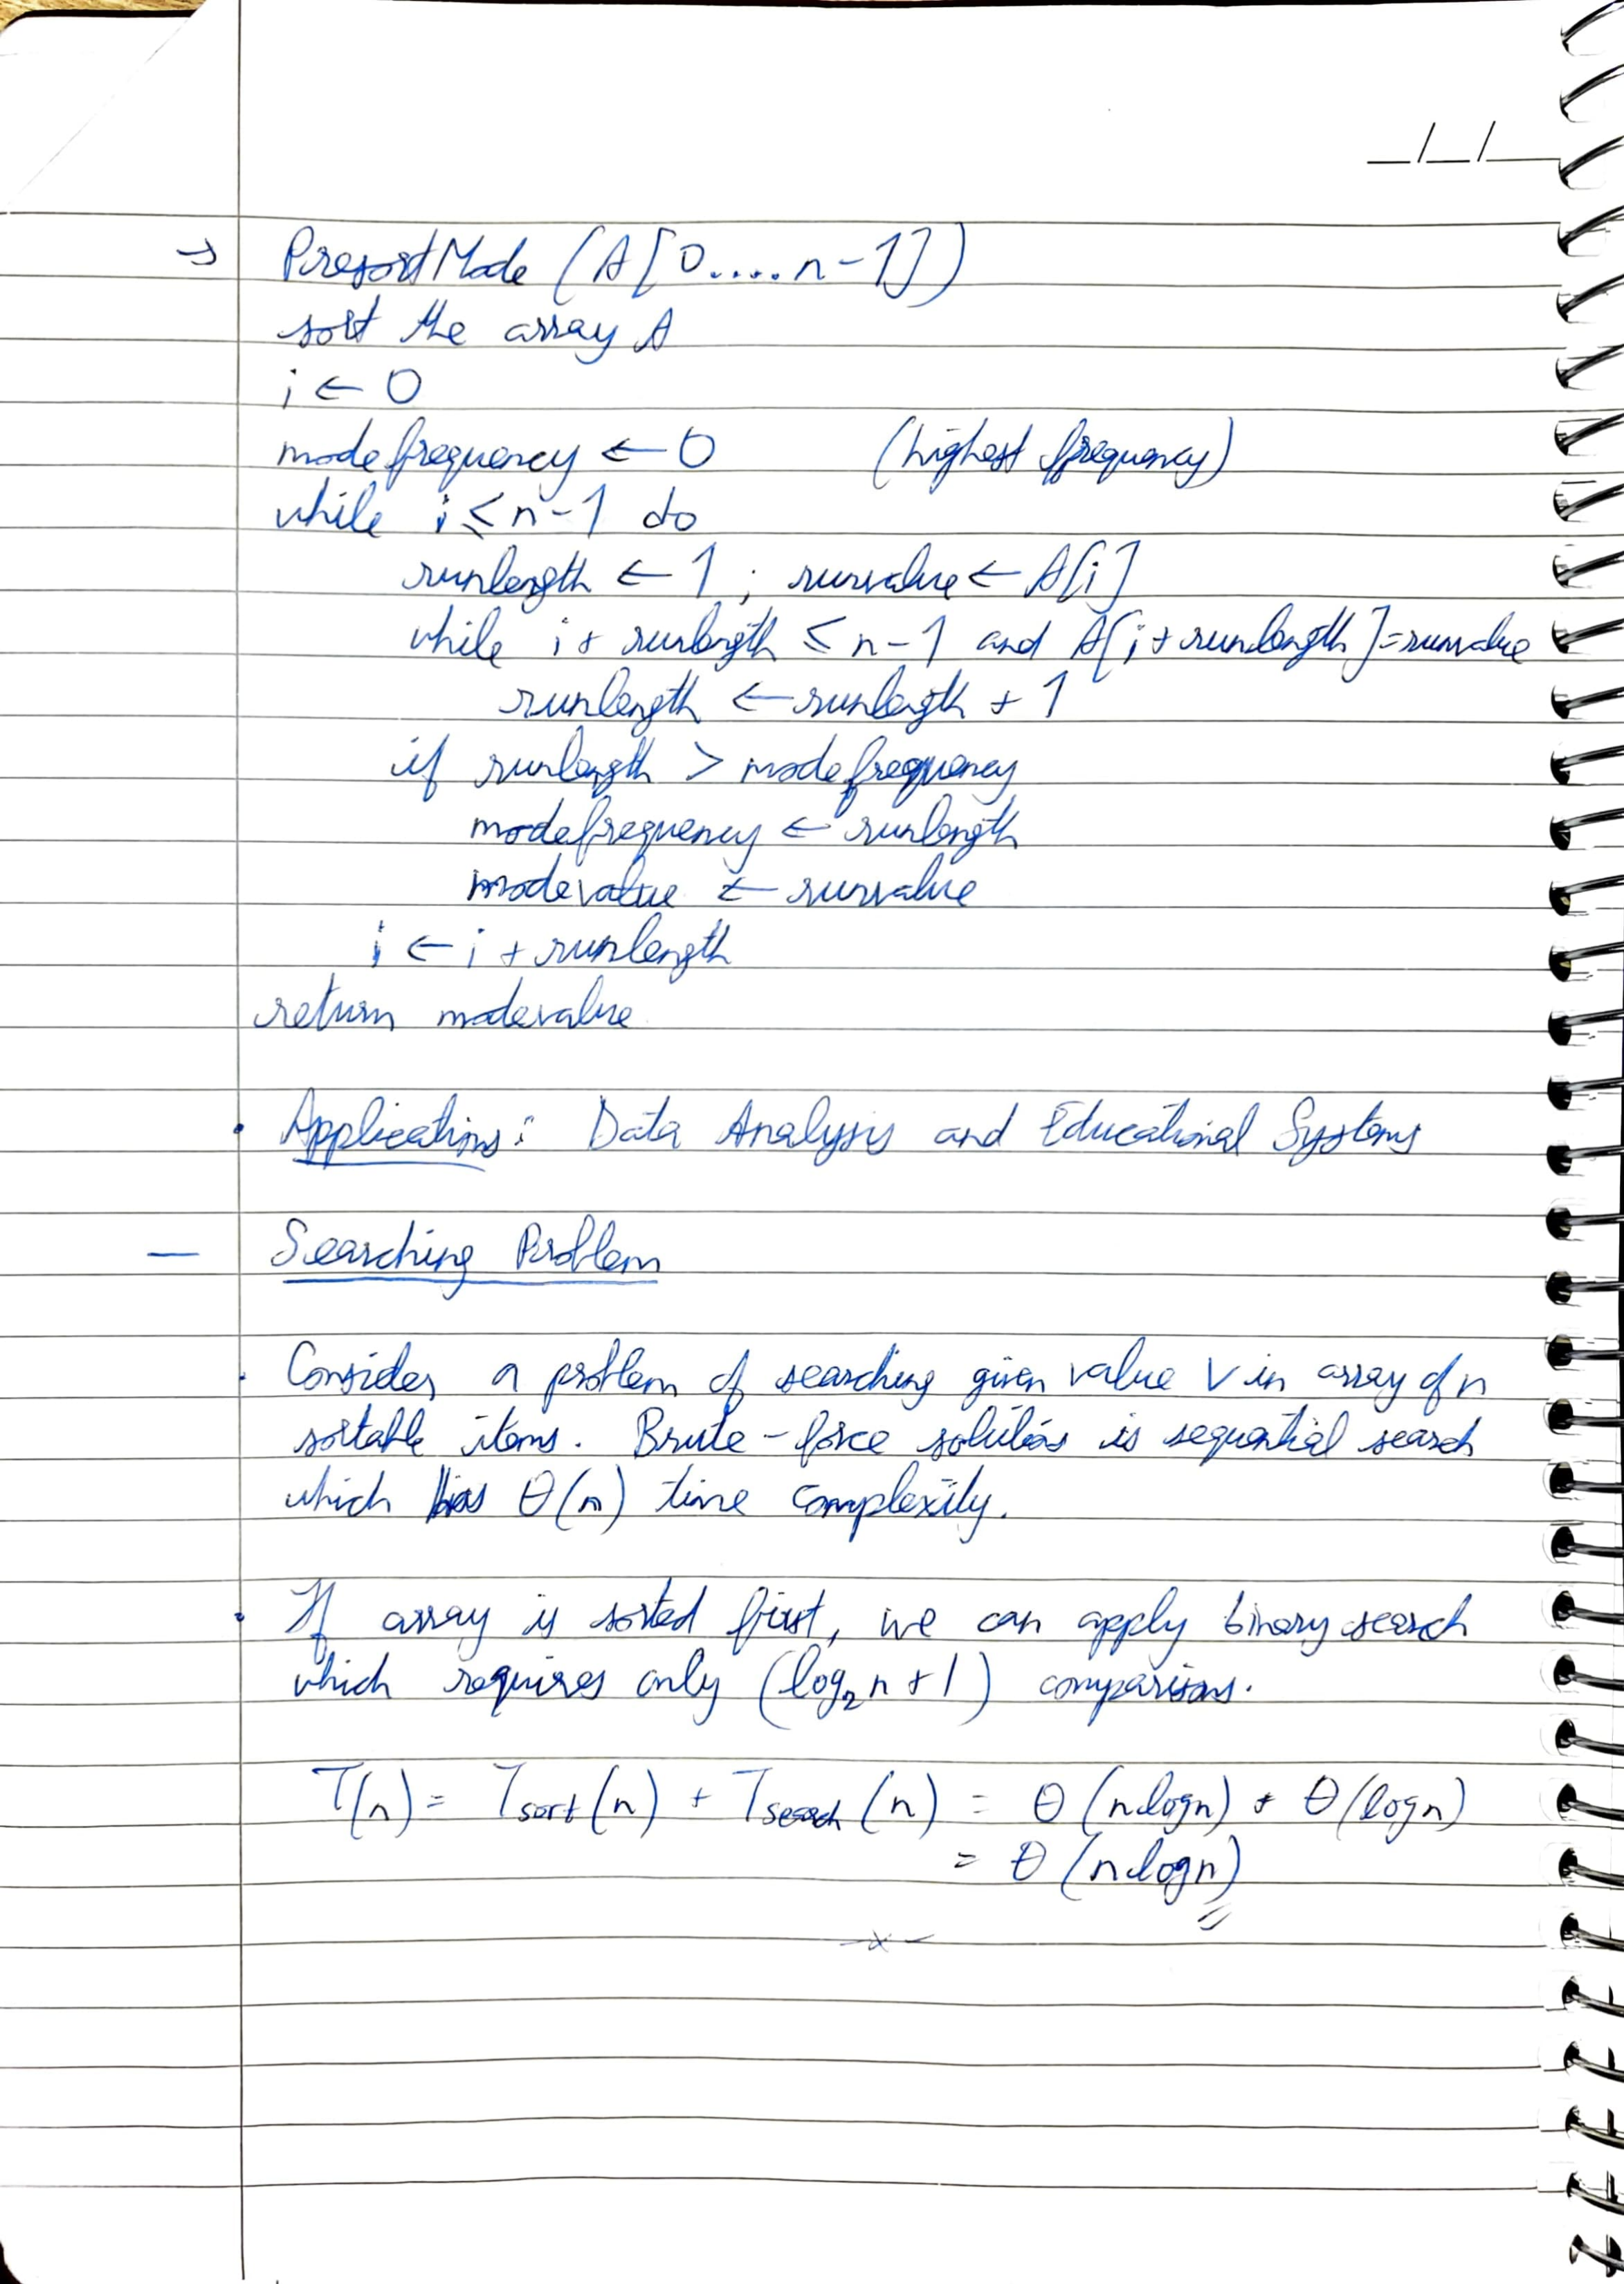 _/_/_
→ PresortMode (A[0.....n-1])
sort the array A
i ← 0
modefrequency ← 0 (highest frequency)
while i ≤ n-1 do
runlength ← 1 ; runvalue ← A[i]
while i + runlength ≤ n-1 and A[i + runlength] = runvalue
runlength ← runlength + 1
if runlength > modefrequency
modefrequency ← runlength
modevalue ← runvalue
i ← i + runlength
return modevalue
• Applications: Data Analysis and Educational Systems
— Searching Problem
• Consider a problem of searching given value V in array of n
sortable items. Brute-force solution is sequential search
which has Θ(n) time complexity.
• If array is sorted first, we can apply binary search
which requires only (log₂n + 1) comparisons.
T(n) = Tsort(n) + Tsearch(n) = Θ(nlogn) + Θ(logn)
= Θ(nlogn)
—x—